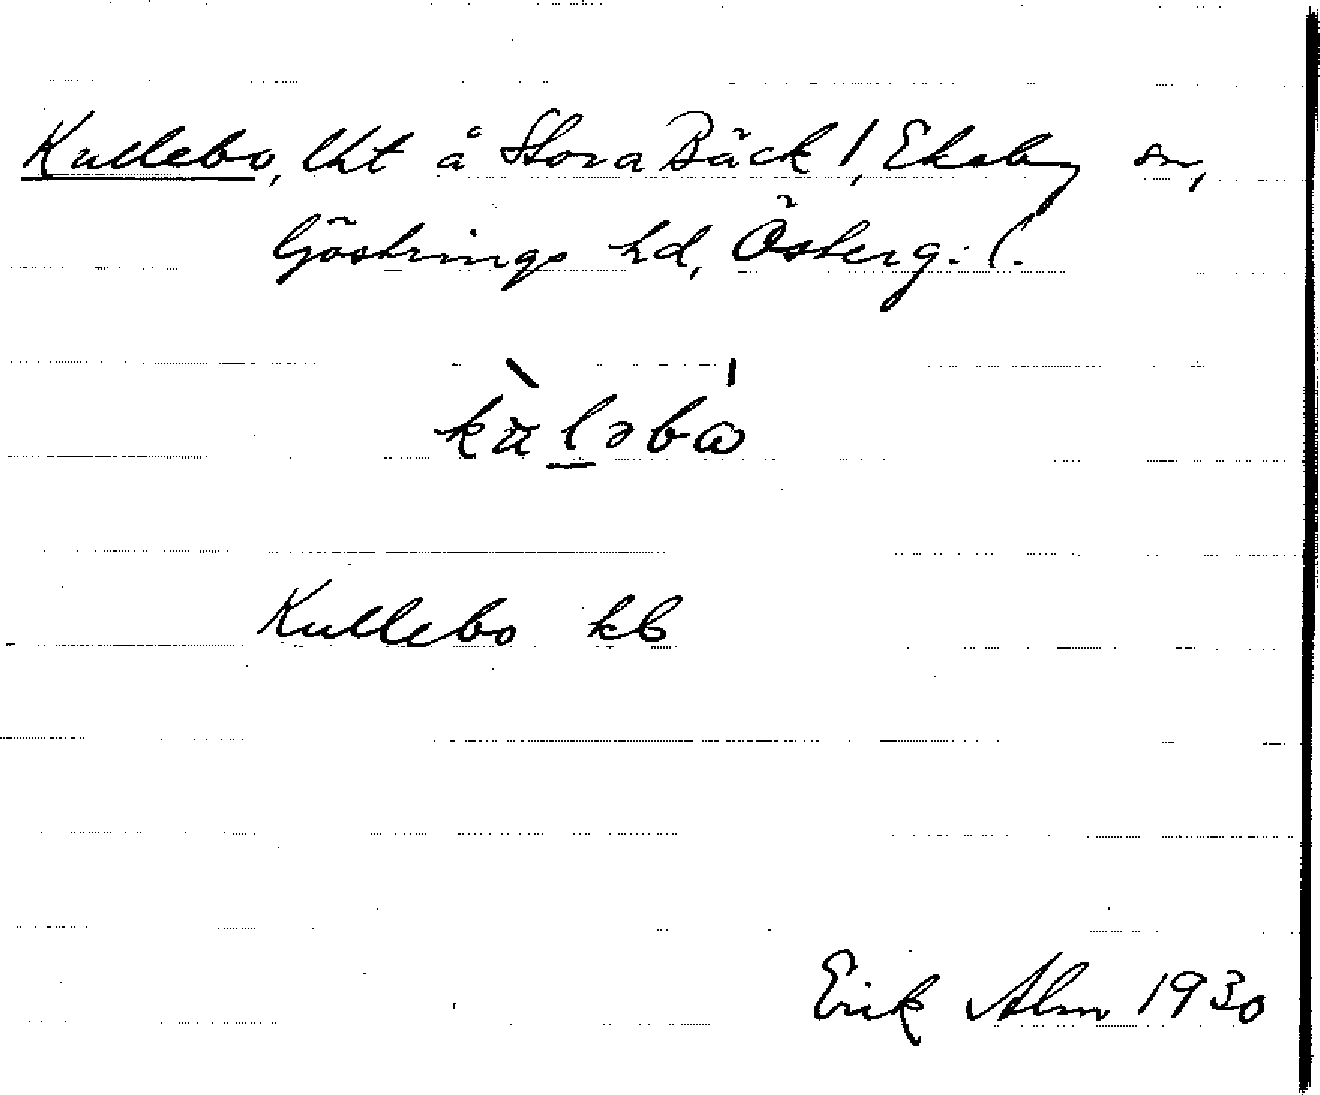 Kullebo, lht å Stora Bäck 1, Ekeby sn,
Göstrings hd, Österg:l.
Kullebo kb
Erik Alm 1930